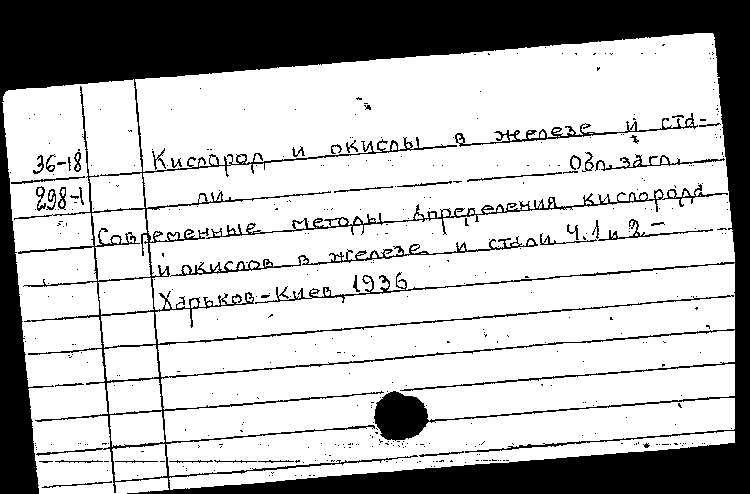 36-18 Кислород и окислы в железе и ста-
298-1 ли. Обл. загл.
Современные методы определения кислорода
и окислов в железе и стали Ч. 1 и 2. –
Харьков-Киев, 1936